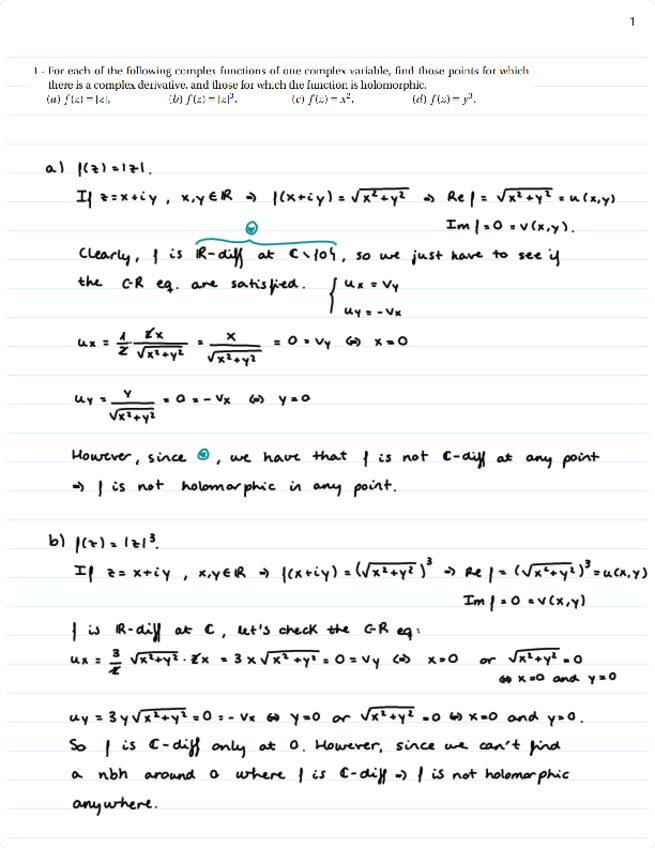 1
1.- For each of the following complex functions of one complex variable, find those points for which
there is a complex derivative, and those for which the function is holomorphic.
(a) f(z) = |z|, (b) f(z) = |z|³, (c) f(z) = x², (d) f(z) = y³.
a) f(z) = |z|.
If z = x+iy , x,y∈ℝ ⇒ f(x+iy) = √(x²+y²) ⇒ Re f = √(x²+y²) = u(x,y)
Im f = 0 = v(x,y).
Clearly, f is ℝ-diff at ℂ∖{0}, so we just have to see if
the C-R eq. are satisfied. { ux = vy
uy = -vx
ux = 1/2 2x/√(x²+y²) = x/√(x²+y²) = 0 = vy ⇔ x=0
uy = y/√(x²+y²) = 0 = -vx ⇔ y=0
However, since ☺, we have that f is not ℂ-diff at any point
⇒ f is not holomorphic in any point.
b) f(z) = |z|³.
If z = x+iy , x,y∈ℝ ⇒ f(x+iy) = (√(x²+y²))³ ⇒ Re f = (√(x²+y²))³ = u(x,y)
Im f = 0 = v(x,y)
f is ℝ-diff at ℂ, let's check the C-R eq:
ux = 3/2 √(x²+y²) · 2x = 3x√(x²+y²) = 0 = vy ⇔ x=0 or √(x²+y²) = 0
⇔ x=0 and y=0
uy = 3y√(x²+y²) = 0 = -vx ⇔ y=0 or √(x²+y²) = 0 ⇔ x=0 and y=0.
So f is ℂ-diff only at 0. However, since we can't find
a nbh around 0 where f is ℂ-diff ⇒ f is not holomorphic
anywhere.